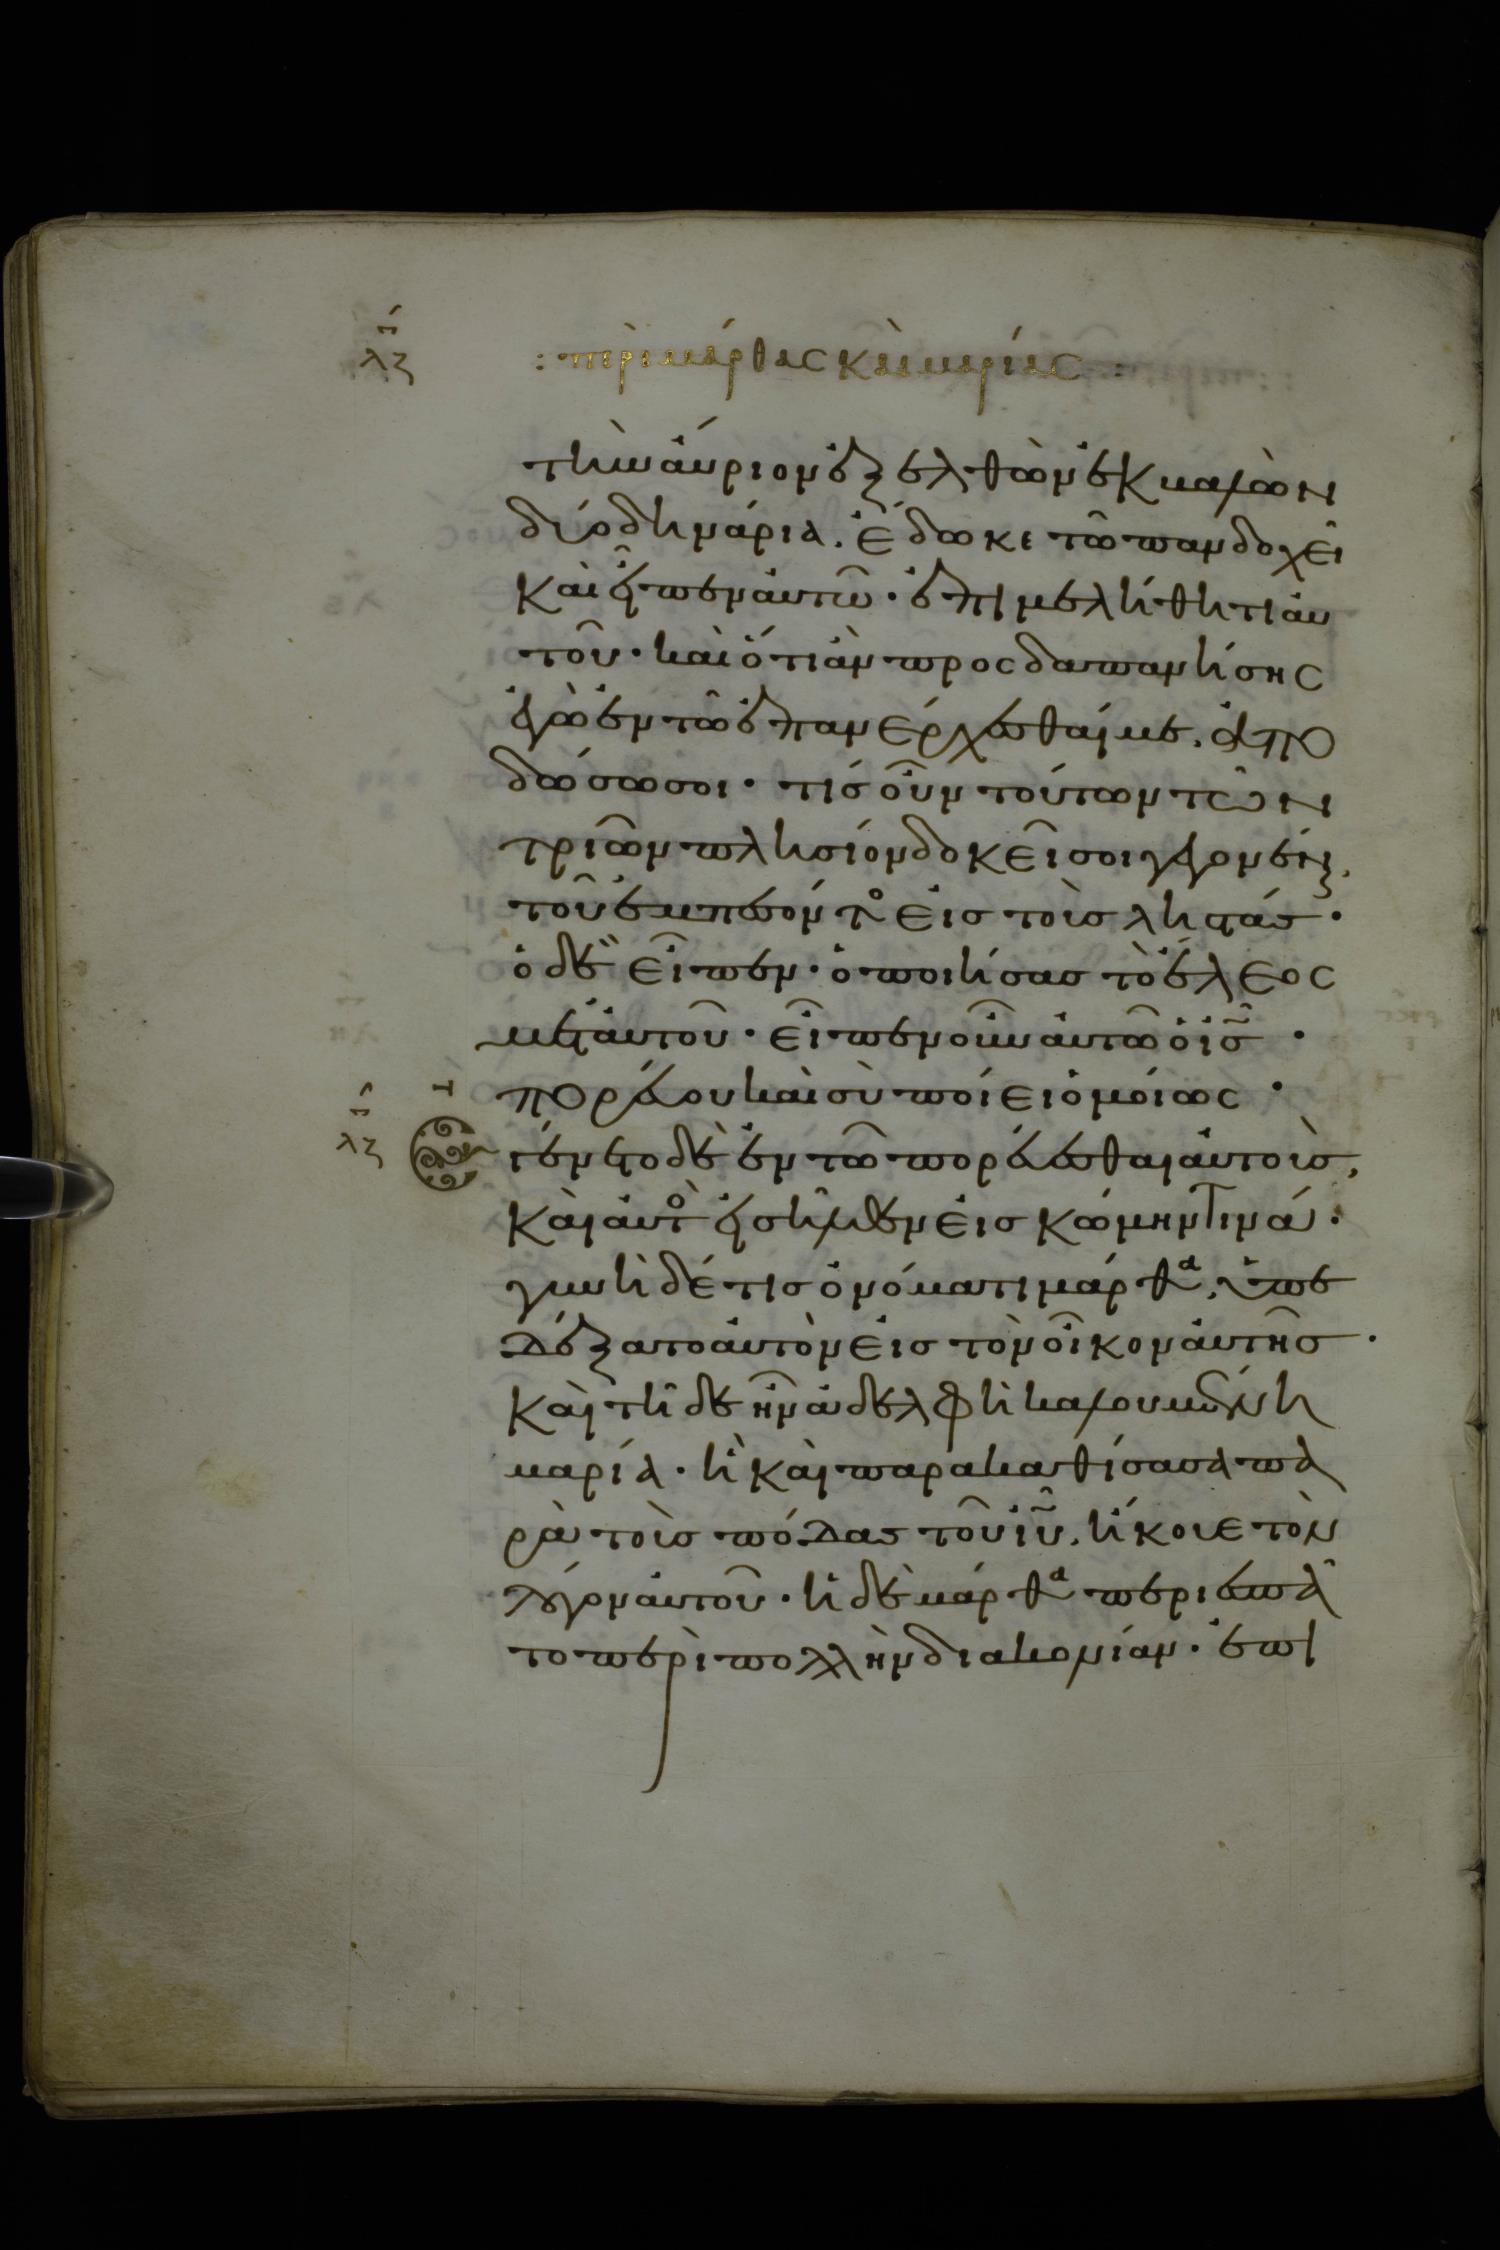 λζ
: περὶ μάρθας καὶ μαρίας :
τὴν ἀύριον ἐξελθὼν ἐκβαλὼν
δύο δηνάρια. ἔδωκε τῶ πανδοχεῖ
καὶ εἶπεν ἀυτῶ· ἐπιμελήθητι ἀυ
τοῦ· καὶ ὅτι ἂν προσδαπανήσης
ἐγὼ ἐν τῶ ἐπανέρχεσθαί με. ἀπο
δώσω σοι· τίς οὖν τούτων τῶν
τριῶν πλησίον δοκεῖ σοι γεγονέναι.
τοῦ ἐμπεσόντος εἰς τοὺς ληστάς·
ὁ δὲ εἶπεν· ὁ ποιήσας τὸ ἔλεος
μετ ἀυτοῦ· εἶπεν οὖν ἀυτῶ ὁ ις·
πορεύου καὶ σὺ ποίει ὁμοίως·
λζ
Εγένετο δὲ ἐν τῶ πορεύεσθαι ἀυτοὺς,
καὶ ἀυτὸς εἰσῆλθεν εἰς κώμην τινά·
γυνὴ δέ τις ὀνόματι μάρθα. ὑπε
δέξατο ἀυτὸν εἰς τὸν οἶκον ἀυτῆς·
καὶ τῆδε ἦν ἀδελφὴ καλουμένη
μαρία· ἣ καὶ παρακαθίσασα πα
ρὰ τοὺς πόδας τοῦ ιυ. ἤκουε τὸν
λόγον ἀυτοῦ· ἡ δὲ μάρθα περιεσπᾶ
το περὶ πολλὴν διακονίαν· ἐπι